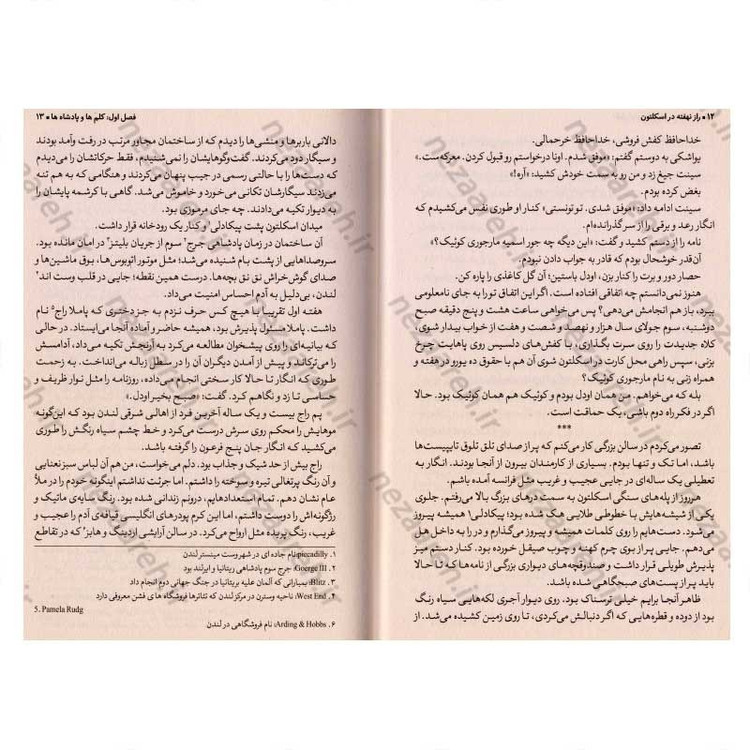 ۱۲ • راز نهفته در اسکلتون
خداحافظ کفش فروشی، خداحافظ خرحمالی.
یواشکی به دوستم گفتم: «موفق شدم. اونا درخواستم رو قبول کردن. معرکه‌ست.»
سینت جیغ زد و من رو به سمت خودش کشید: «آره!»
بغض کرده بودم.
سینت ادامه داد: «موفق شدی. تو تونستی» کنار او طوری نفس می‌کشیدم که
انگار رعد و برقی را از سر گذرانده‌ام.
نامه را از دستم کشید و گفت: «این دیگه چه جور اسمیه مارجوری کوئیک؟»
آن‌قدر خوشحال بودم که قادر به جواب دادن نبودم.
حصار دور و برت را کنار بزن، اودل باستین؛ آن گل کاغذی را پاره کن.
هنوز نمی‌دانستم چه اتفاقی افتاده است. اگر این اتفاق تو را به جای نامعلومی
ببرد، باز هم انجامش می‌دهی؟ پس می‌خواهی ساعت هشت و پنج دقیقه صبح
دوشنبه، سوم جولای سال هزار و نهصد و شصت و هفت از خواب بیدار شوی.
کلاه جدیدت را روی سرت بگذاری، با کفش‌های دلسیس روی پاهایت چرخ
بزنی، سپس راهی محل کارت در اسکلتون شوی آن هم با حقوق ده یورو در هفته و
همراه زنی به نام مارجوری کوئیک؟
بله که می‌خواهم. من همان اودل بودم و کوئیک هم همان کوئیک بود. حالا
اگر در فکر راه دوم باشی، یک حماقت است.
***
تصور می‌کردم در سالن بزرگی کار می‌کنم که پر از صدای تلق تلوق تایپیست‌ها
باشد، اما تک و تنها بودم. بسیاری از کارمندان بیرون از آنجا بودند. انگار به
تعطیلی یک ساله‌ای در جایی عجیب و غریب مثل فرانسه آمده باشم.
هر روز از پله‌های سنگی اسکلتون به سمت درهای بزرگ بالا می‌رفتم. جلوی
یکی از شیشه‌هایش با خطوطی طلایی هک شده بود؛ پیکادلی! همیشه پیروز
می‌شود. دست‌هایم را روی کلمات همیشه و پیروز می‌گذارم و در را به داخل هل
می‌دهم. جایی پر از بوی چرم کهنه و چوب صیقل خورده بود. کنار دستم میز
پذیرش طویلی قرار داشت و صندوقچه‌های دیواری بزرگی از نامه‌ها که تا حالا
باید پر از پست‌های صبحگاهی شده باشد.
ظاهر آنجا برایم خیلی ترسناک بود. روی دیوار آجری لکه‌هایی سیاه رنگ
بود از دوده و قطره‌هایی که اگر دنبالش می‌گردی، تا روی زمین کشیده می‌شد. از
فصل اول: کلم ها و پادشاه ها • ۱۳
دالانی باربرها و منشی‌ها را دیدم که از ساختمان مجاور مرتب در رفت وآمد بودند
و سیگار دود می‌کردند. گفت‌وگوهایشان را نمی‌شنیدم، فقط حرکاتشان را می‌دیدم
که دست‌ها را با حالتی رسمی در جیب پنهان می‌کردند و هنگامی که به هم تنه
می‌زدند سیگارشان تکانی می‌خورد و خاموش می‌شد. گاهی با کرشمه پایشان را
به دیوار تکیه می‌دادند. چه جای مرموزی بود.
میدان اسکلتون پشت پیکادلی۱ و کنار یک رودخانه قرار داشت.
آن ساختمان در زمان پادشاهی جرج۲ سوم از جریان بلیتز۳ در امان مانده بود.
سروصداهایی از پشت بام شنیده می‌شد؛ مثل موتور اتوبوس‌ها، بوق ماشین‌ها و
صدای گوش‌خراش نق نق بچه‌ها. درست همین نقطه؛ جایی در قلب وست اند۴
لندن، بی‌دلیل به آدم احساس امنیت می‌داد.
هفته اول تقریبا با هیچ کس حرف نزدم به جز دختری که پاملا راج۵ نام
داشت. پاملا مسئول پذیرش بود، همیشه حاضر و آماده آنجا می‌ایستاد. در حالی
که بیانیه‌ای را روی پیشخوان مطالعه می‌کرد به آرنجش تکیه می‌داد، آدامسش
را می‌ترکاند و پیش از آمدن دیگران آن را در سطل زباله می‌انداخت. به زحمت
طوری که انگار تا حالا کار سختی انجام می‌داده، روزنامه را مثل نوار ظریف و
حساسی تا زد و نگاهم کرد. گفت: «صبح بخیر اودل.»
پم راج بیست و یک ساله آخرین فرد از اهالی شرقی لندن بود که این‌گونه
موهایش را محکم روی سرش درست می‌کرد و خط چشم سیاه رنگش را طوری
می‌کشید که انگار جان پنج فرعون را گرفته باشد.
راج بیش از حد شیک و جذاب بود. دلم می‌خواست، من هم آن لباس سبز نعنایی
و آن رنگ پرتغالی تیره و پخته را داشتم. اما جرئت نداشتم اینگونه خودم را در ملأ
عام نشان دهم. تمام استعدادهایم، درونم زندانی شده بود. رنگ سایه‌ی ماتیک و
رژگونه‌اش را دوست داشتم، اما این کرم پودرهای انگلیسی قیافه‌ی آدم را عجیب و
غریب، رنگ پریده مثل ارواح می‌کرد. در سالن آرایشی اردینگ و هابز۶ که در تقاطع
۱. piccadilly: نام جاده ای در شهر وست مینستر لندن
۲. Goerge III: جرج سوم پادشاهی بریتانیا و ایرلند بود
۳. Blitz: بمبارانی که آلمان علیه بریتانیا در جنگ جهانی دوم انجام داد
۴. West End: ناحیه وسترن در مرکز لندن که تئاترها فروشگاه ها ی فشن معروفی دارد
5. Pamela Rudg
۶. Arding & Hobbs: نام فروشگاهی در لندن
nezaareh.ir